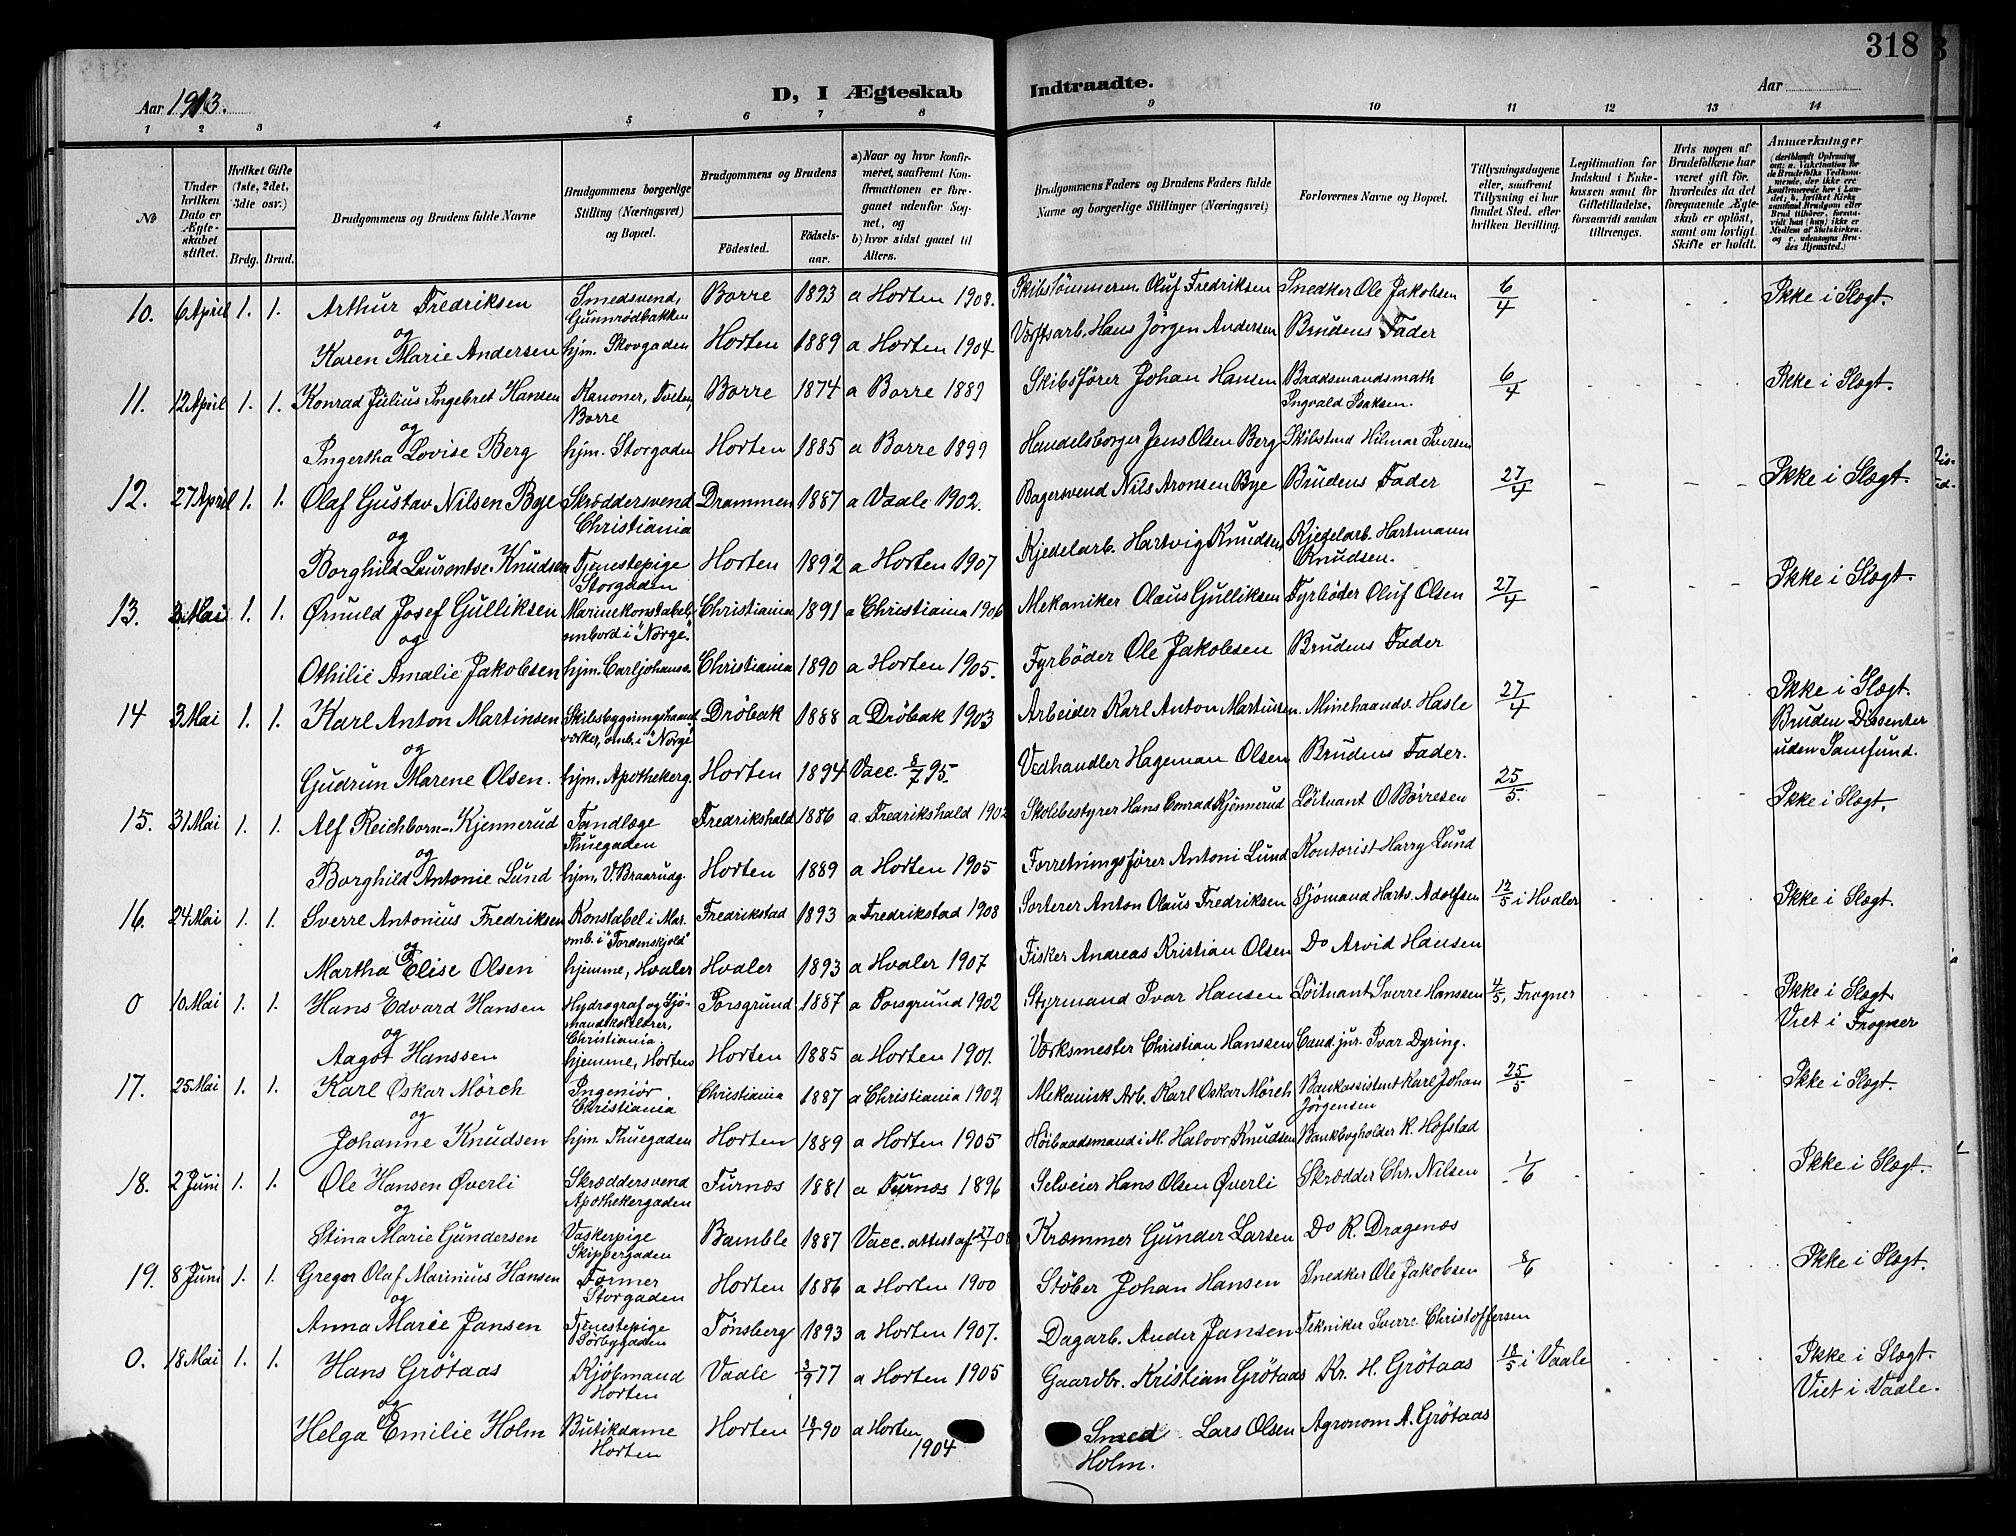 318
Aar 1913.
D, I Ægteskab
Indtraadte.
Aar
1 2 3 4 5 6 7 8 9 10 11 12 13 14
No
Under hvilken Dato er Ægteskabet stiftet.
Hvilket Gifte (1ste, 2det, 3die osv.)
Brdg. Brud.
Brudgommens og Brudens fulde Navne
Brudgommens borgerlige Stilling (Næringsvei) og Bopæl.
Brudgommens og Brudens
Födested.
Födselsaar.
a) Naar og hvor konfirmeret, saafremt Konfirmationen er foregaaet udenfor Sognet, og
b) hvor sidst gaaet til Alters.
Brudgommens Faders og Brudens Faders fulde Navne og borgerlige Stillinger (Næringsvei)
Forlovernes Navne og Bopæl.
Tillysningsdagene eller, saafremt Tillysning ei har fundet Sted, efter hvilken Bevilling.
Legitimation for Indskud i Enkekassen samt for Giftetilladelse, forsaavidt saadan tiltrænges.
Hvis nogen af Brudefolkene har været gift før, hvorledes da det foregaaende Ægteskab er opløst, samt om lovligt Skifte er holdt.
Anmærkninger
10. 6 April 1. 1. Arthur Fredriksen Smedsvend, Gunnrødbakken Borre 1893 a Horten 1908. Skibstömmerm. Oluf Fredriksen Snedker Ole Jakobsen 6/4 Ikke i Slægt.
og
Karen Marie Andersen hjm. Skovgaden Horten 1889 a Horten 1904 Værftsarb. Hans Jörgen Andersen Brudens Fader
11. 12 April 1. 1. Konrad Julius Ingebret Hansen Kanoner, Tveten, Borre Borre 1874 a Borre 1889 Skibsfører Johan Hansen Baadsmandsmath Ingvald Isaksen. 6/4 Ikke i Slægt.
og
Ingertha Lovise Berg hjm. Storgaden Horten 1885 a Borre 1899 Handelsborger Jens Olsen Berg Skibstmd Hilmar Iversen
12. 27 April 1. 1. Olaf Gustav Nilsen Bye Skræddersvend Christiania Drammen 1887 a Vaale 1902. Bagersvend Nils Aronsen Bye Brudens Fader 27/4 Ikke i Slægt.
og
Borghild Laurentse Knudsen Tjenestepige Storgaden Horten 1892 a Horten 1907 Kjedelarb. Hartvig Knudsen Kjedelarb. Hartmann Knudsen.
13. 3 Mai 1. 1. Ørnuld Josef Gulliksen Marinekonstabel, ombord i "Norge". Christiania 1891 a Christiania 1906 Mekaniker Olaus Gulliksen Fyrbøder Oluf Olsen 27/4 Ikke i Slægt.
og
Othilie Amalie Jakobsen hjm. Carljohans. Christiania 1890 a Horten 1905. Fyrbøder Ole Jakobsen Brudens Fader
14 3 Mai 1. 1. Karl Anton Martinsen Skibsbygningshaandværker, omb. i "Norge" Dröbak 1888 a Dröbak 1903 Arbeider Karl Anton Martinsen. Minehaandv. Hasle 27/4 Ikke i Slægt. Bruden Dissenter uden Samfund.
og
Gudrun Marene Olsen. hjm. Apothekerg. Horten 1894 Vacc. 8/7 95. Vedhandler Hageman Olsen Brudens Fader.
15. 31 Mai 1. 1. Alf Reichborn-Kjennerud Tandlæge Thuegaden Fredrikshald 1886 a. Fredrikshald 1902 Skolebestyrer Hans Conrad Kjennerud Löitnant O Börresen 25/5. Ikke i Slægt.
og
Borghild Antonie Lund hjm. V. Braarudg. Horten 1889 a Horten 1905 Forretningsfører Antoni Lund Kontorist Harry Lund
16. 24 Mai 1. 1. Sverre Antonius Fredriksen Konstabel i Mar. omb. i "Tordenskjold" Fredrikstad 1893 a Fredrikstad 1908 Sorterer Anton Olaus Fredriksen Sjömand Hartv. Adolfsen 12/5 i Hvaler Ikke i Slægt.
og
Martha Elise Olsen hjemme, Hvaler Hvaler 1893 a Hvaler 1907 Fisker Andreas Kristian Olsen Do Arvid Hansen
0 10 Mai 1. 1. Hans Edvard Hansen Hydrograf og Sjömandskolelærer, Christiania Porsgrund 1887 a Porsgrund 1902 Styrmand Ivar Hansen Löitnant Sverre Hanssen 4/5, Frogner Ikke i Slægt. Viet i Frogner
og
Aagot Hanssen hjemme, Horten Horten 1885 a Horten 1901. Værksmester Christian Hanssen Cand. jur. Ivar Dyring.
17. 25 Mai 1. 1. Karl Oskar Mörch Ingeniör Christiania Christiania 1887 a Christiania 1902 Mekanisk Arb. Karl Oskar Mörch Bankassistent Karl Johan Jörgensen 25/5 Ikke i Slægt.
og
Johanne Knudsen hjm. Thuegaden Horten 1889 a Horten 1905 Höibaadsmand i M. Halvor Knudsen Bankbogholder K. Hofstad
18. 2 Juni 1. 1. Ole Hansen Øverli Skræddersvend Apothekergaden Furnæs 1881 a Furnæs 1896 Selveier Hans Olsen Øverli Skrædder Chr. Nilsen 1/6 Ikke i Slægt.
og
Stina Marie Gundersen Vaskerpige Skippergaden Bamble 1887 Vacc. attest af 27/7 08 Kræmmer Gunder Larsen Do K. Dragenæs
19. 8 Juni 1. 1. Gregor Olaf Marinius Hansen Former Storgaden Horten 1886 a Horten 1900 Støber Johan Hansen Snedker Ole Jakobsen 8/6 Ikke i Slægt.
og
Anna Marie Jansen Tjenestepige Sörbygaden Tönsberg 1893 a Horten 1907. Dagarb. Ander Jansen Tekniker Sverre Christoffersen
0. 18 Mai 1. 1. Hans Grötaas Kjöbmand Horten Vaale 3/9 77 a Horten 1905 Gaardbr. Kristian Grötaas Kr. H. Grötaas 18/5 i Vaale Ikke i Slægt. Viet i Vaale.
og
Helga Emilie Holm Butikdame Horten Horten 18/7 90 a Horten 1904 Smed Lars Olsen Holm. Agronom A. Grötaas